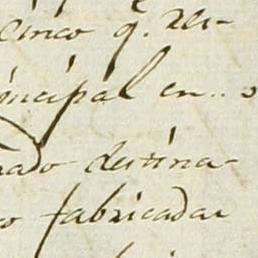 cinco q. res-
incipal en
rado destina-
fabricadas